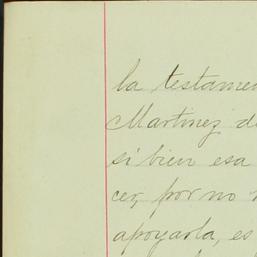 la testamen
Martinez de
si bien esa
cer, por no
apoyarla, es